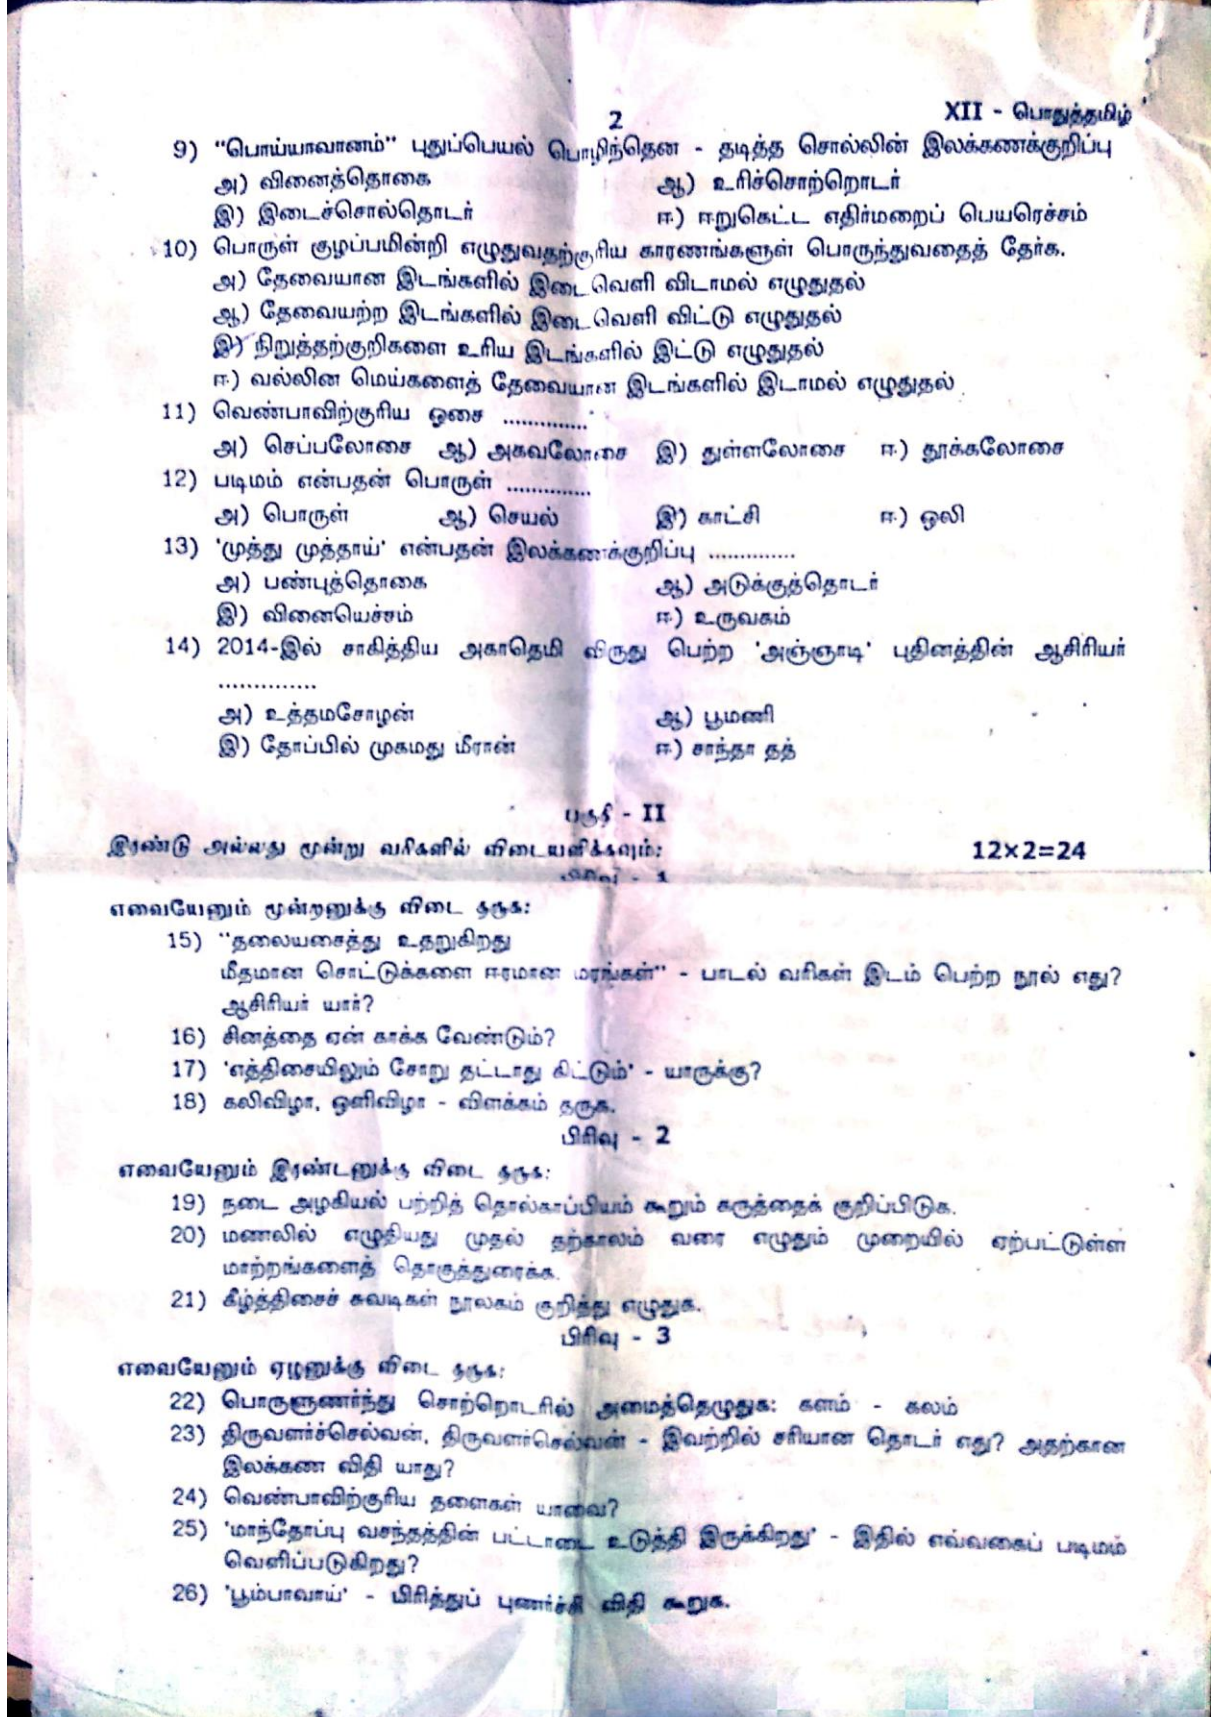 2
XII - பொதுத்தமிழ்
9) "பொய்யாவானம்" புதுப்பெயல் பொழிந்தென - தடித்த சொல்லின் இலக்கணக்குறிப்பு
அ) வினைத்தொகை ஆ) உரிச்சொற்றொடர்
இ) இடைச்சொல்தொடர் ஈ) ஈறுகெட்ட எதிர்மறைப் பெயரெச்சம்
10) பொருள் குழப்பமின்றி எழுதுவதற்குரிய காரணங்களுள் பொருந்துவதைத் தேர்க.
அ) தேவையான இடங்களில் இடைவெளி விடாமல் எழுதுதல்
ஆ) தேவையற்ற இடங்களில் இடைவெளி விட்டு எழுதுதல்
இ) நிறுத்தற்குறிகளை உரிய இடங்களில் இட்டு எழுதுதல்
ஈ) வல்லின மெய்களைத் தேவையான இடங்களில் இடாமல் எழுதுதல்
11) வெண்பாவிற்குரிய ஓசை ..............
அ) செப்பலோசை ஆ) அகவலோசை இ) துள்ளலோசை ஈ) தூக்கலோசை
12) படிமம் என்பதன் பொருள் ..............
அ) பொருள் ஆ) செயல் இ) காட்சி ஈ) ஒலி
13) 'முத்து முத்தாய்' என்பதன் இலக்கணக்குறிப்பு ..............
அ) பண்புத்தொகை ஆ) அடுக்குத்தொடர்
இ) வினையெச்சம் ஈ) உருவகம்
14) 2014-இல் சாகித்திய அகாதெமி விருது பெற்ற 'அஞ்ஞாடி' புதினத்தின் ஆசிரியர்
..............
அ) உத்தமசோழன் ஆ) பூமணி
இ) தோப்பில் முகமது மீரான் ஈ) சாந்தா தத்
பகுதி - II
இரண்டு அல்லது மூன்று வரிகளில் விடையளிக்கவும்: 12×2=24
பிரிவு - 1
எவையேனும் மூன்றனுக்கு விடை தருக:
15) "தலையசைத்து உதறுகிறது
மீதமான சொட்டுக்களை ஈரமான மரங்கள்" - பாடல் வரிகள் இடம் பெற்ற நூல் எது?
ஆசிரியர் யார்?
16) சினத்தை ஏன் காக்க வேண்டும்?
17) 'எத்திசையிலும் சோறு தட்டாது கிட்டும்' - யாருக்கு?
18) கலிவிழா, ஒளிவிழா - விளக்கம் தருக.
பிரிவு - 2
எவையேனும் இரண்டனுக்கு விடை தருக:
19) நடை அழகியல் பற்றித் தொல்காப்பியம் கூறும் கருத்தைக் குறிப்பிடுக.
20) மணலில் எழுதியது முதல் தற்காலம் வரை எழுதும் முறையில் ஏற்பட்டுள்ள
மாற்றங்களைத் தொகுத்துரைக்க.
21) கீழ்த்திசைச் சுவடிகள் நூலகம் குறித்து எழுதுக.
பிரிவு - 3
எவையேனும் ஏழனுக்கு விடை தருக:
22) பொருளுணர்ந்து சொற்றொடரில் அமைத்தெழுதுக: களம் - கலம்
23) திருவளர்ச்செல்வன், திருவளர்செல்வன் - இவற்றில் சரியான தொடர் எது? அதற்கான
இலக்கண விதி யாது?
24) வெண்பாவிற்குரிய தளைகள் யாவை?
25) 'மாந்தோப்பு வசந்தத்தின் பட்டாடை உடுத்தி இருக்கிறது' - இதில் எவ்வகைப் படிமம்
வெளிப்படுகிறது?
26) 'பூம்பாவாய்' - பிரித்துப் புணர்ச்சி விதி கூறுக.